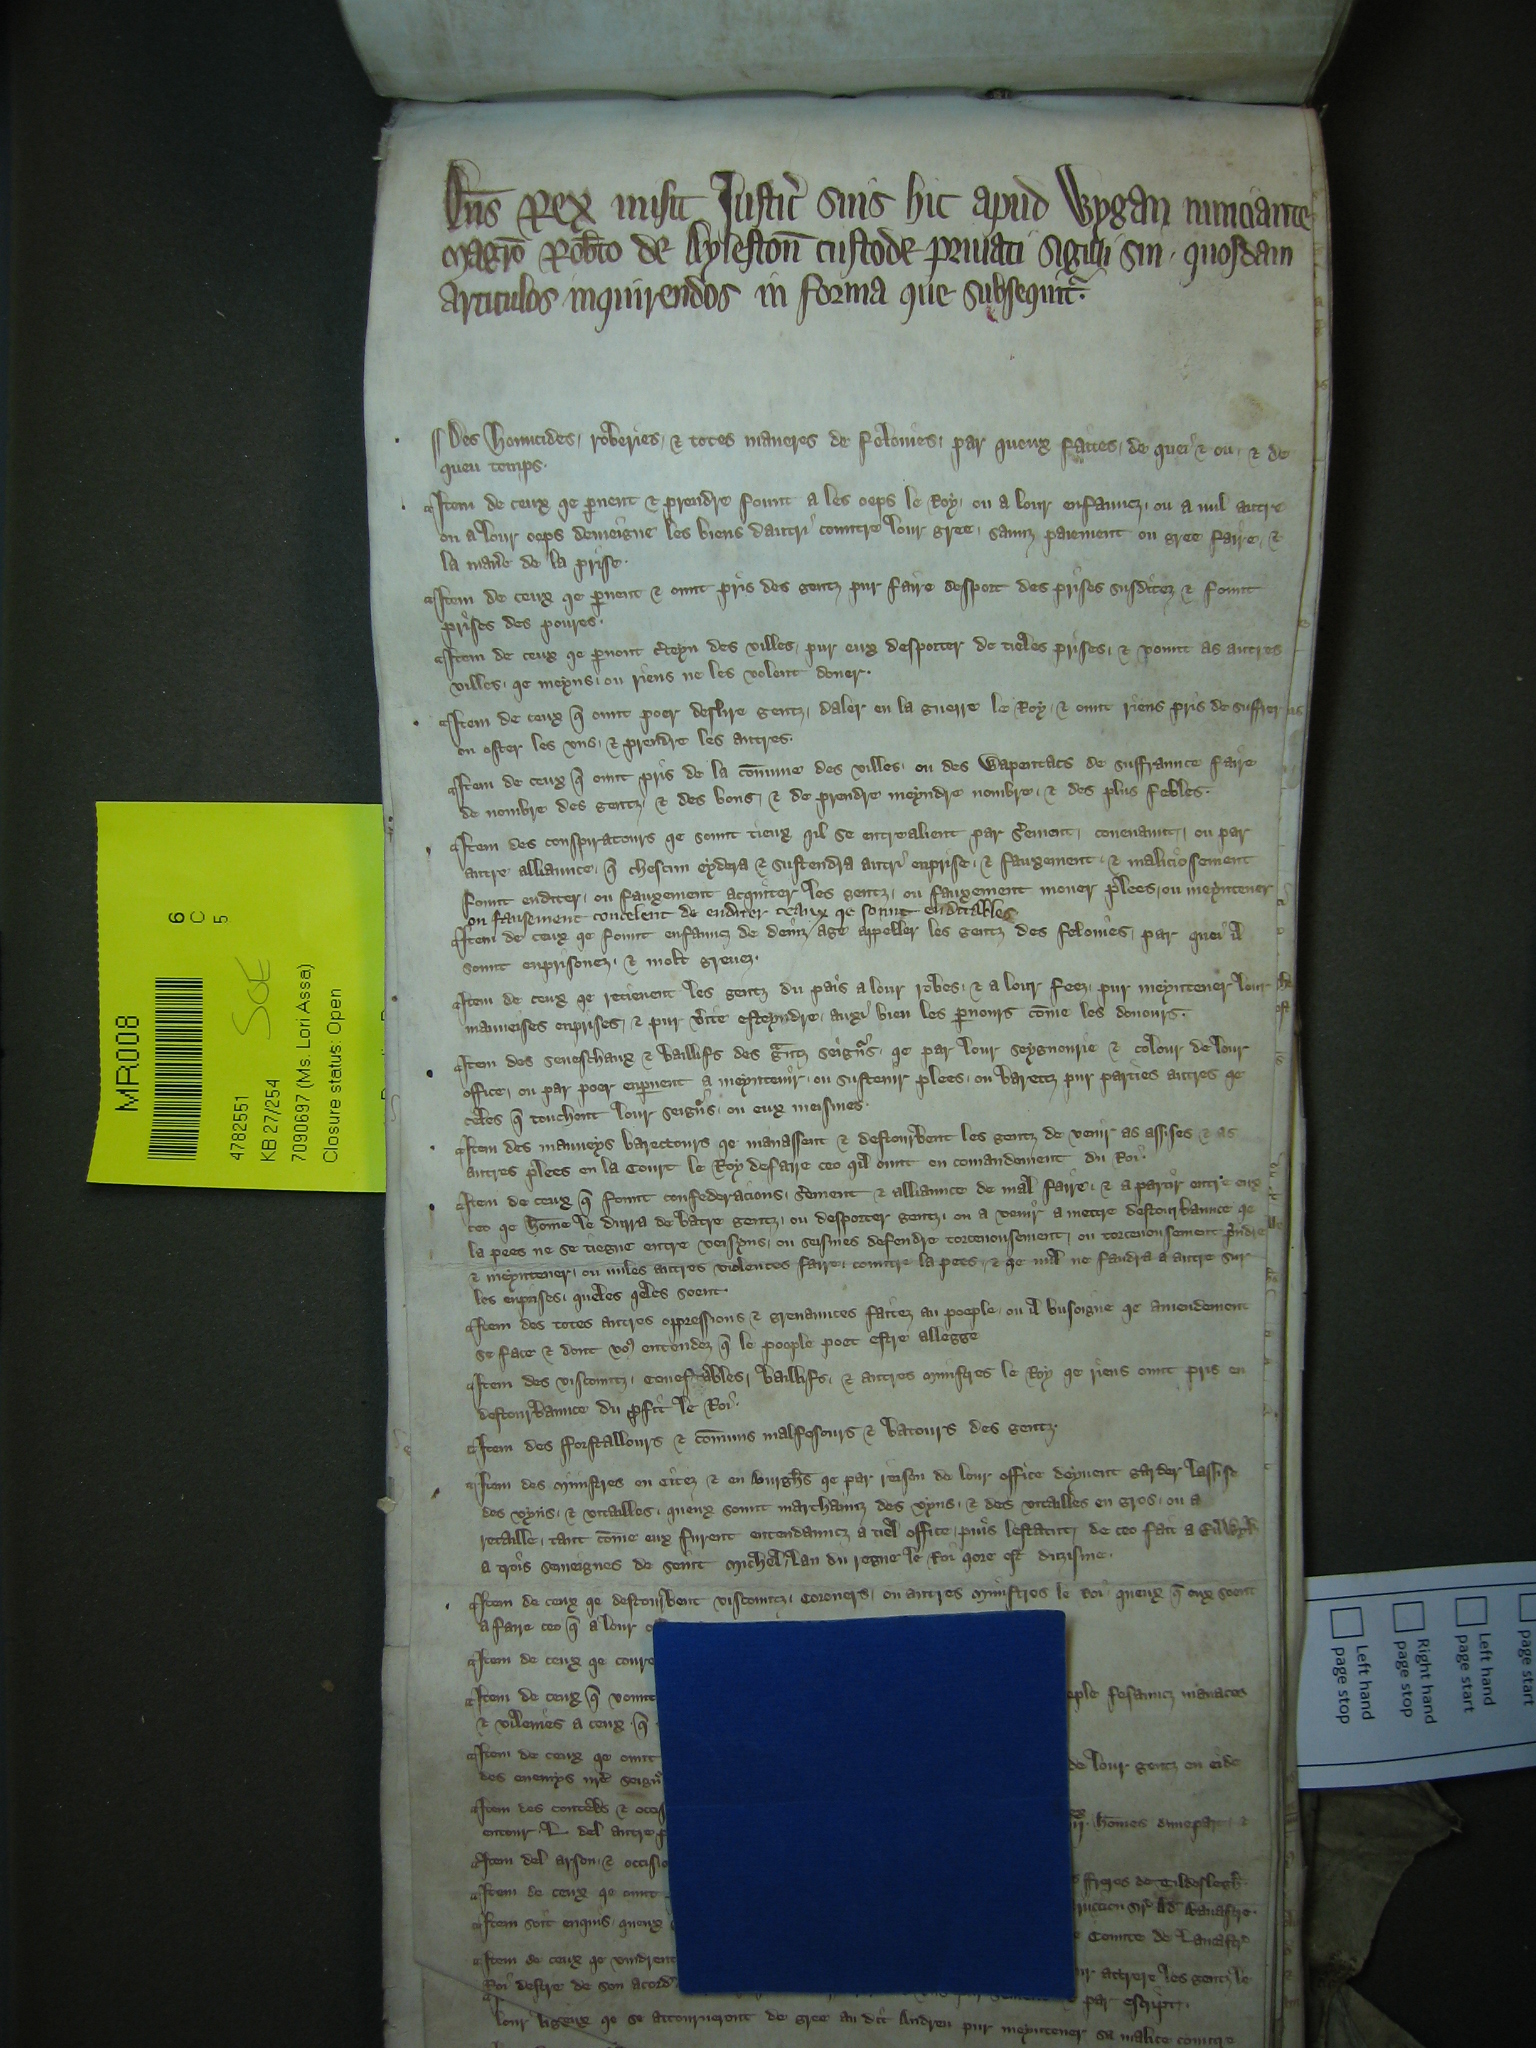 Dn̄s Rex misit Justic̄ suis hic apud Wygan nunciante
Magr̄o Rob̄to de Ayleston̄ custode privati sigilli sui quosdam
articulos inquirendos in forma que subsequit᷑
Des homicides, roberies, & totes maneres de felonies, par queux faites, de quei & ou, & de
queu temps.
Item de ceux qe p̄nent & prendre fount a les oeps le Roy, ou a lour enfauntz, ou a nul autre
ou a lour oeps demeigne les biens dautri countre lour gree, sauntz paiement ou gree faire, &
la man̄e de la prise.
Item de ceux qe p̄nent & ount pris des gentz pur faire desport des prises susditez & fount
prises des poures.
Item de ceux qe p̄nent c̄teyn des villes, pur eux desporter de tieles prises, & vount as autres
villes, qe meyns, ou riens ne les volent doner.
Item de ceux q̄ ount poer deslire gentz, daler en la guerre le Roy, & ount riens pris de suffrer
ou oster les uns, & prendre les autres.
Item de ceux q̄ ount pris de la cōmune des villes, ou des Wapentacs de suffraunce faire
de nombre des gentz, & des bons, & de prendre meyndre nombre, & des plus febles.
Item des conspiratours qe sount tieux qil se entrealient par s̄ement, covenaunt, ou par
autre alliaunce, q̄ chescun eydera & sustendra autri enprise, & fauxement & maliciosement
fount enditer, ou fauxement acquiter les gentz, ou fauxement mover plees, ou meyntener
ou fausement concelent de enditer ceaux qe sount enditables
Item de ceux qe fount enfauntz de deinz age appeller les gentz des felonies, par quei il
sount enprisonez, & molt grevez.
Item de ceux qe retienent les gentz du pais a lour robes, & a lour feez, pur meyntener lour
mauveises enprises, & pur v̄ite esteyndre, auxi bien les p̄nours cōme les donours.
Item des seneschaux & baillifs des g̃ntz seign̄s, qe par lour seygnourie & colour de lour
office, ou par poer enp̄nent a meyntenir, ou sustenir plees, ou baretz pur parties autres qe
celes q̄ touchent lour seign̄s, ou eux meismes.
Item des mauveys barettours qe manassent & destourbent les gentz de venir as assises & as
autres plees en la Court le Roy defaire ceo qil ount en comandement du Roi.
Item de ceux q̄ fount confederacions, s̄ement & alliaunce de mal faire, & a partir entre eux
ceo qe home le durra de batre gentz, ou desporter gentz, ou a venir a mettre destourbaunce qe
la pees ne se tiegne entre veisyns, ou seisines defendre torcenousement, ou torcenousement p̄ndre
& meyntener, ou nules autres violences faire, countre la pees, & qe nul ne faudra a autre sur
les enprises, queles qeles soent.
Item des totes autres oppressions & grevaunces faitez au poeple, ou il busoigne qe amendement
se face & dont vo᷒ entendez q̄ le poeple poet estre allegge
Item des viscountz, Conestables, baillifs, & autres Ministres le Roy qe riens ount pris en
destourbaunce du p̄fit le Roi.
Item des fforstallours & cōmuns malfesours & batours des gentz.
Item des Ministres en Citez & en Burghs qe par reison de lour office deyvent garder lassise
des vyns, & vitailles, queux sount marchauntz des vyns, & des vitailles en gros, ou a
retaille, tant cōme eux furent entendauntz a tiel office, puis lestatut, de ceo fait a Everwyk
a trois semeignes de seint Michel, lan du regne le Roi qore est duzisme.
Item de ceux qe destourbent viscountz, Coroners, ou autres Ministres le Roi queux q̄ eux soent
a faire ceo q̄ a lour
Item de ceux qe
Item de ceux q̄ vount eple fesauntz manaces
& vilenies a ceux q̄
Item de ceux qe ount de lour gentz en eide
des enemys nr̄e seign̄
Item des contekes & homes dunepart, &
entour L del autre
Item del arson, & occisio
Item de ceux qe ount ffrres de Tildeslegh
Item soit enquis, queux Sir Ad̄ Banastre.
Item de ceux qe vindrent Counte de Lancastr̄
Roi destre de son acord attrere les gentz le
par escript.
lour ligeux qe se attournerent de gree au dit Andreu pur meyntener sa malice countre
MR008
6
C
5
SCE
4782551
KB 27/254
7090697 (Ms. Lori Assa)
Closure status: Open
page start
Left hand
page start
Right hand
page stop
Left hand
page stop